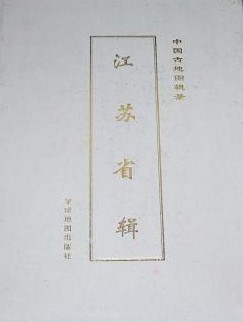 中国古地图辑录
江苏省辑
星球地图出版社